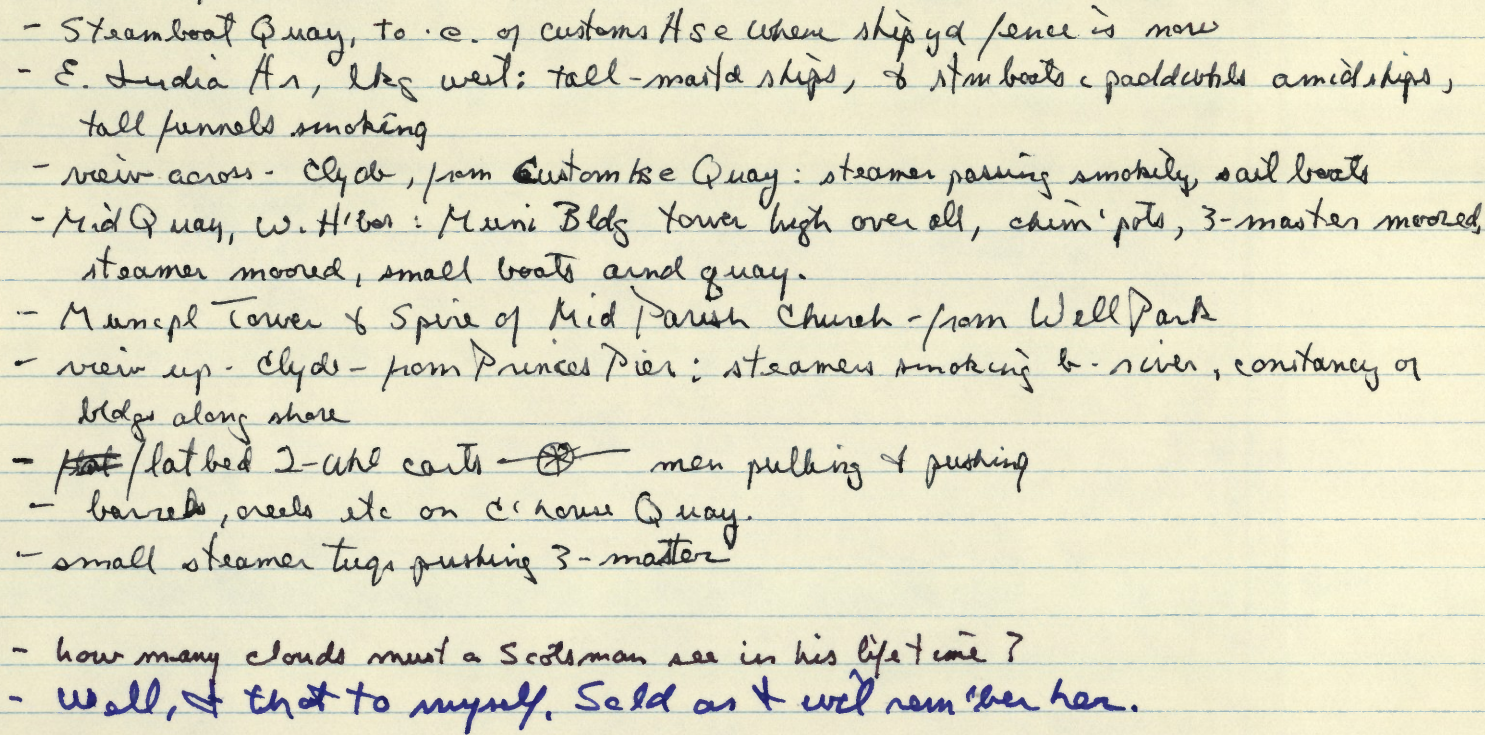 - Steamboat Quay, to · e. of customs Hse where shipyd fence is now
- E. India Hr, lkg west: tall-mastd ships, & stmboats c paddwhls amidships,
tall funnels smoking
- view across - Clyde, from Customhse Quay: steamer passing smokily, sail boats
- Mid Quay, W. H'bor: Muni Bldg tower high over all, chim' pots, 3-master moored,
steamer moored, small boats arnd quay.
- Muncpl Tower & Spire of Mid Parish Church - from Well Park
- view up - Clyde - from Princes Pier: steamers smoking - river, constancy of
bldgs along shore
- flatbed 2-whl carts men pulling & pushing
- barrels, creels etc on C'house Quay.
- small steamer tugs pushing 3-master
- how many clouds must a Scotsman see in his lifetime?
- Well, & that to myself. Sold as I rem'ber her.